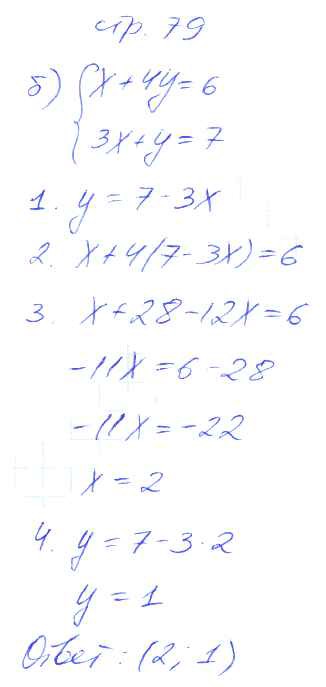 стр. 79
б) { x + 4y = 6
3x + y = 7
1. y = 7 - 3x
2. x + 4(7 - 3x) = 6
3. x + 28 - 12x = 6
-11x = 6 - 28
-11x = -22
x = 2
4. y = 7 - 3 · 2
y = 1
Ответ: (2; 1)